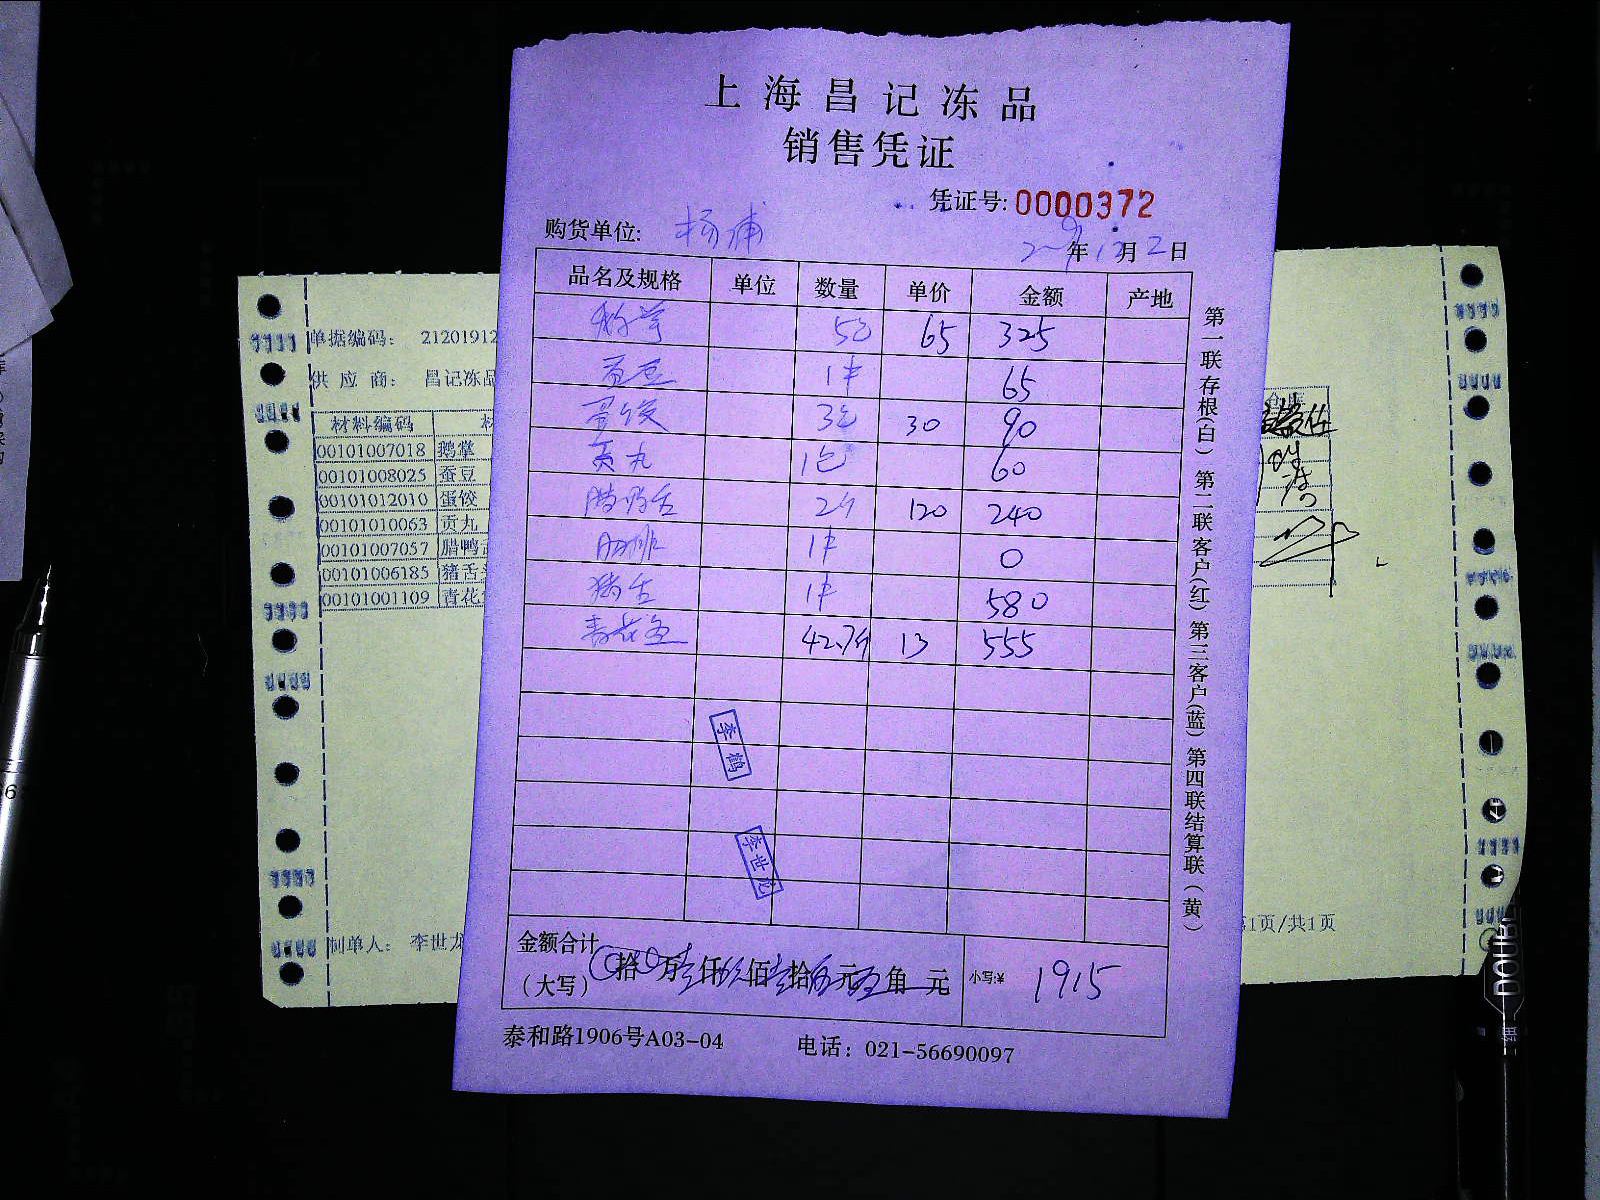 上海昌记冻品
销售凭证
凭证号:0000372
购货单位: 杨浦
年12月2日
品名及规格 单位 数量 单价 金额 产地
鹅掌 5包 65 325
蚕豆 1件 65
蛋饺 3包 30 90
贡丸 1包 60
腊鸭舌 2斤 120 240
1件 0
猪舌 1件 580
青花鱼 42.7斤 13 555
李鹤
李世龙
金额合计
(大写) 拾 万壹仟玖佰壹拾伍元 角 元 小写:¥ 1915
泰和路1906号A03-04 电话：021-56690097
第一联存根(白) 第二联客户(红) 第三客户(蓝) 第四联结算联(黄)
单据编码： 21201912
供应商： 昌记冻品
材料编码
00101007018 鹅掌
00101008025 蚕豆
00101012010 蛋饺
00101010063 贡丸
00101007057 腊鸭
00101006185 猪舌
00101001109 青花
制单人： 李世龙
仓库
第1页/共1页
DOUBL